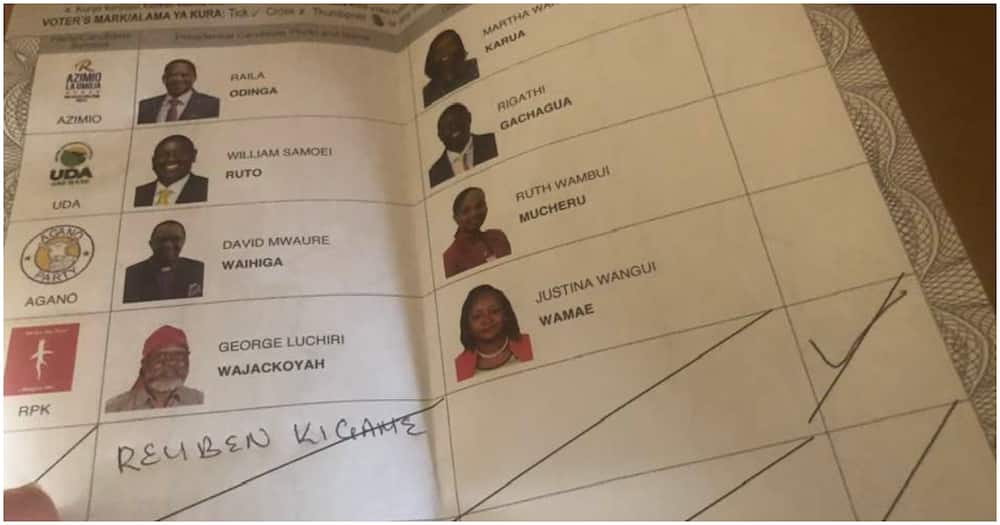 VOTER'S MARK/ALAMA YA KURA: Tick ✓ Cross x Thumbprint
Party/Candidate Symbol
Presidential Candidate Photo and Name
AZIMIO
LA UMOJA
AZIMIO
RAILA
ODINGA
MARTHA
KARUA
UDA
UDA
WILLIAM SAMOEI
RUTO
RIGATHI
GACHAGUA
AGANO
PARTY
AGANO
DAVID MWAURE
WAIHIGA
RUTH WAMBUI
MUCHERU
RPK
GEORGE LUCHIRI
WAJACKOYAH
JUSTINA WANGUI
WAMAE
REUBEN KIGAME